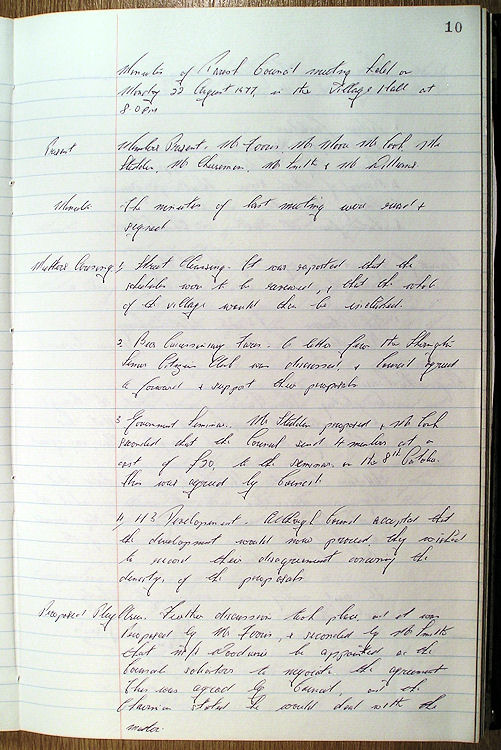 10
Minutes of Parish Council meeting held on
Monday 22 August 1977, in the Village Hall at
8.0pm
Present Members Present, Mr Mr Moore Mr Cook Mr
Stebben, Mr Mr Smith & Mr Williams.
Minutes The minutes of last meeting were read &
signed
Matters Arising 1, Street Cleansing. It was reported that the
schedules were to be renewed, & that the whole
of the village would then be included.
2 Bus Concessionary Fares. A letter from the
Senior Citizen Club was discussed, & Council agreed
to forward & support their proposals
3 Government Seminar. Mr Stebben proposed & Mr Cook
seconded that the Council send 4 members at a
cost of £20, to the seminar on the 8th October.
This was agreed by Council.
4, Development. Although Council accepted that
the development would now proceed, they wished
to record their disagreement concerning the
density, of the proposals
Proposed Play Area. Further discussion took place, and it was
Proposed by Mr & seconded by Mr Smith
that M/s Woodwine be appointed as the
Councils solicitors to negotiate the agreement
This was agreed by Council, and the
Chairman stated he would deal with the
matter.